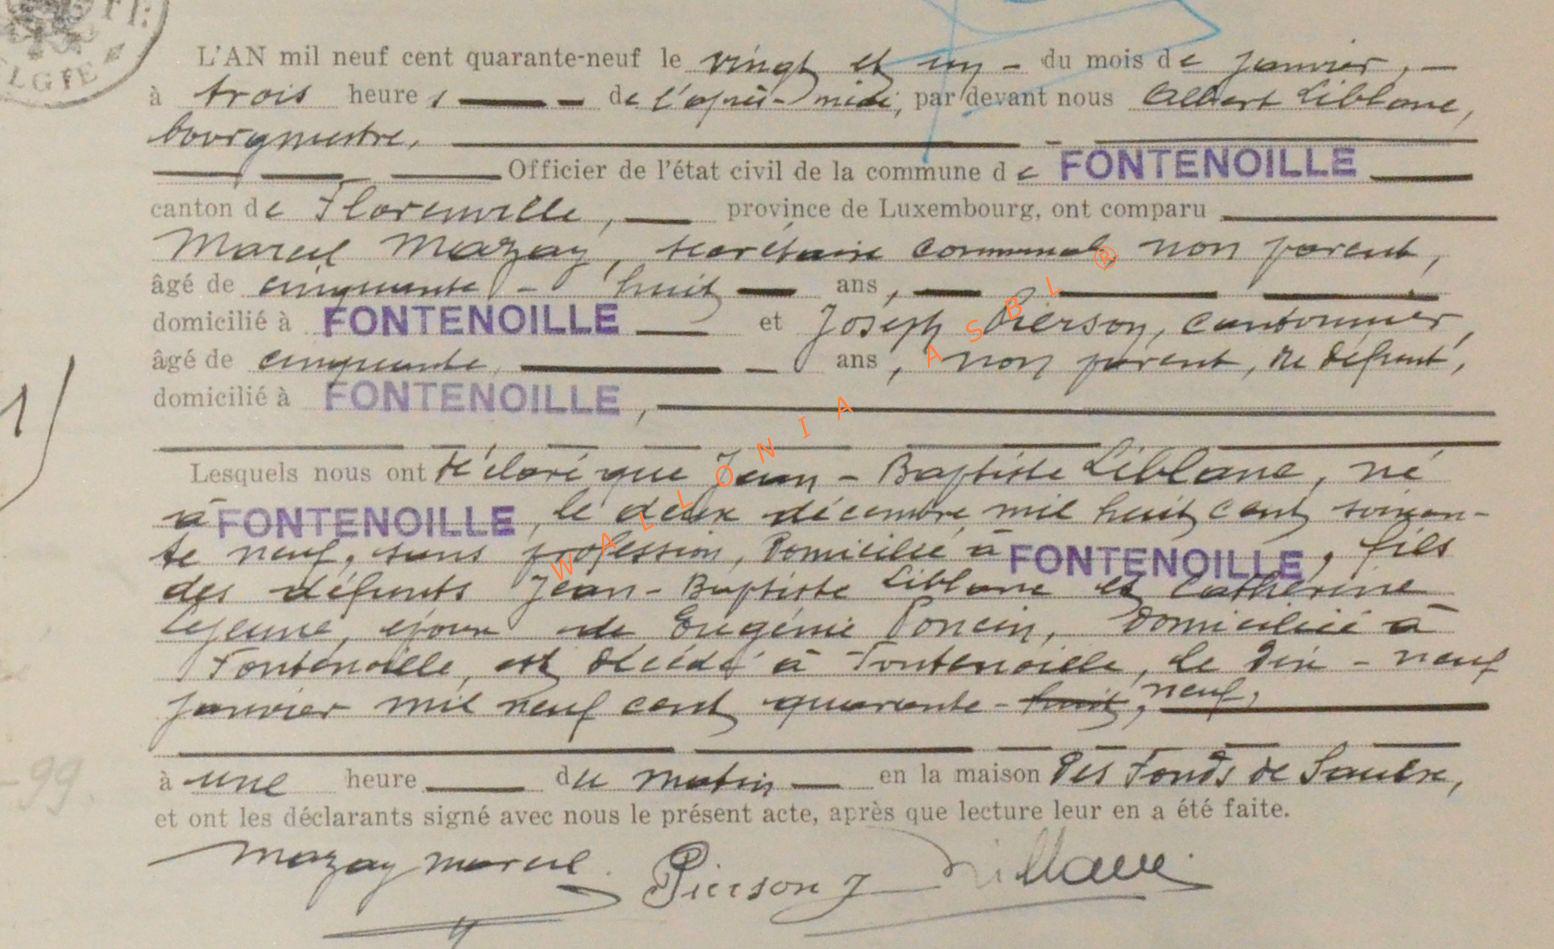 LGIE
L'AN mil neuf cent quarante-neuf le vingt et un - du mois de janvier, -
à trois heures - de l'après-midi, par devant nous Albert Liblanc,
bourgmestre,
Officier de l'état civil de la commune de FONTENOILLE
canton de Florenville, province de Luxembourg, ont comparu
Marcel Mazay, secrétaire communal, non parent,
âgé de cinquante - huit ans,
domicilié à FONTENOILLE et Joseph Pierson, cantonnier,
âgé de cinquante, ans, non parent, du défunt,
domicilié à FONTENOILLE,
1)
Lesquels nous ont déclaré que Jean-Baptiste Liblanc, né
à FONTENOILLE, le deux décembre mil huit cent soixan-
te neuf, sans profession, domicilié à FONTENOILLE, fils
des défunts Jean-Baptiste Liblanc et Catherine
Lejeune, époux de Eugénie Poncin, domiciliée à
Fontenoille, est décédé à Fontenoille, le dix-neuf
janvier mil neuf cent quarante-huit, neuf,
-99.
à une heure du matin en la maison des Fonds de Saulx,
et ont les déclarants signé avec nous le présent acte, après que lecture leur en a été faite.
Mazay Marcel. Pierson J
WALLONIA ASBL ®